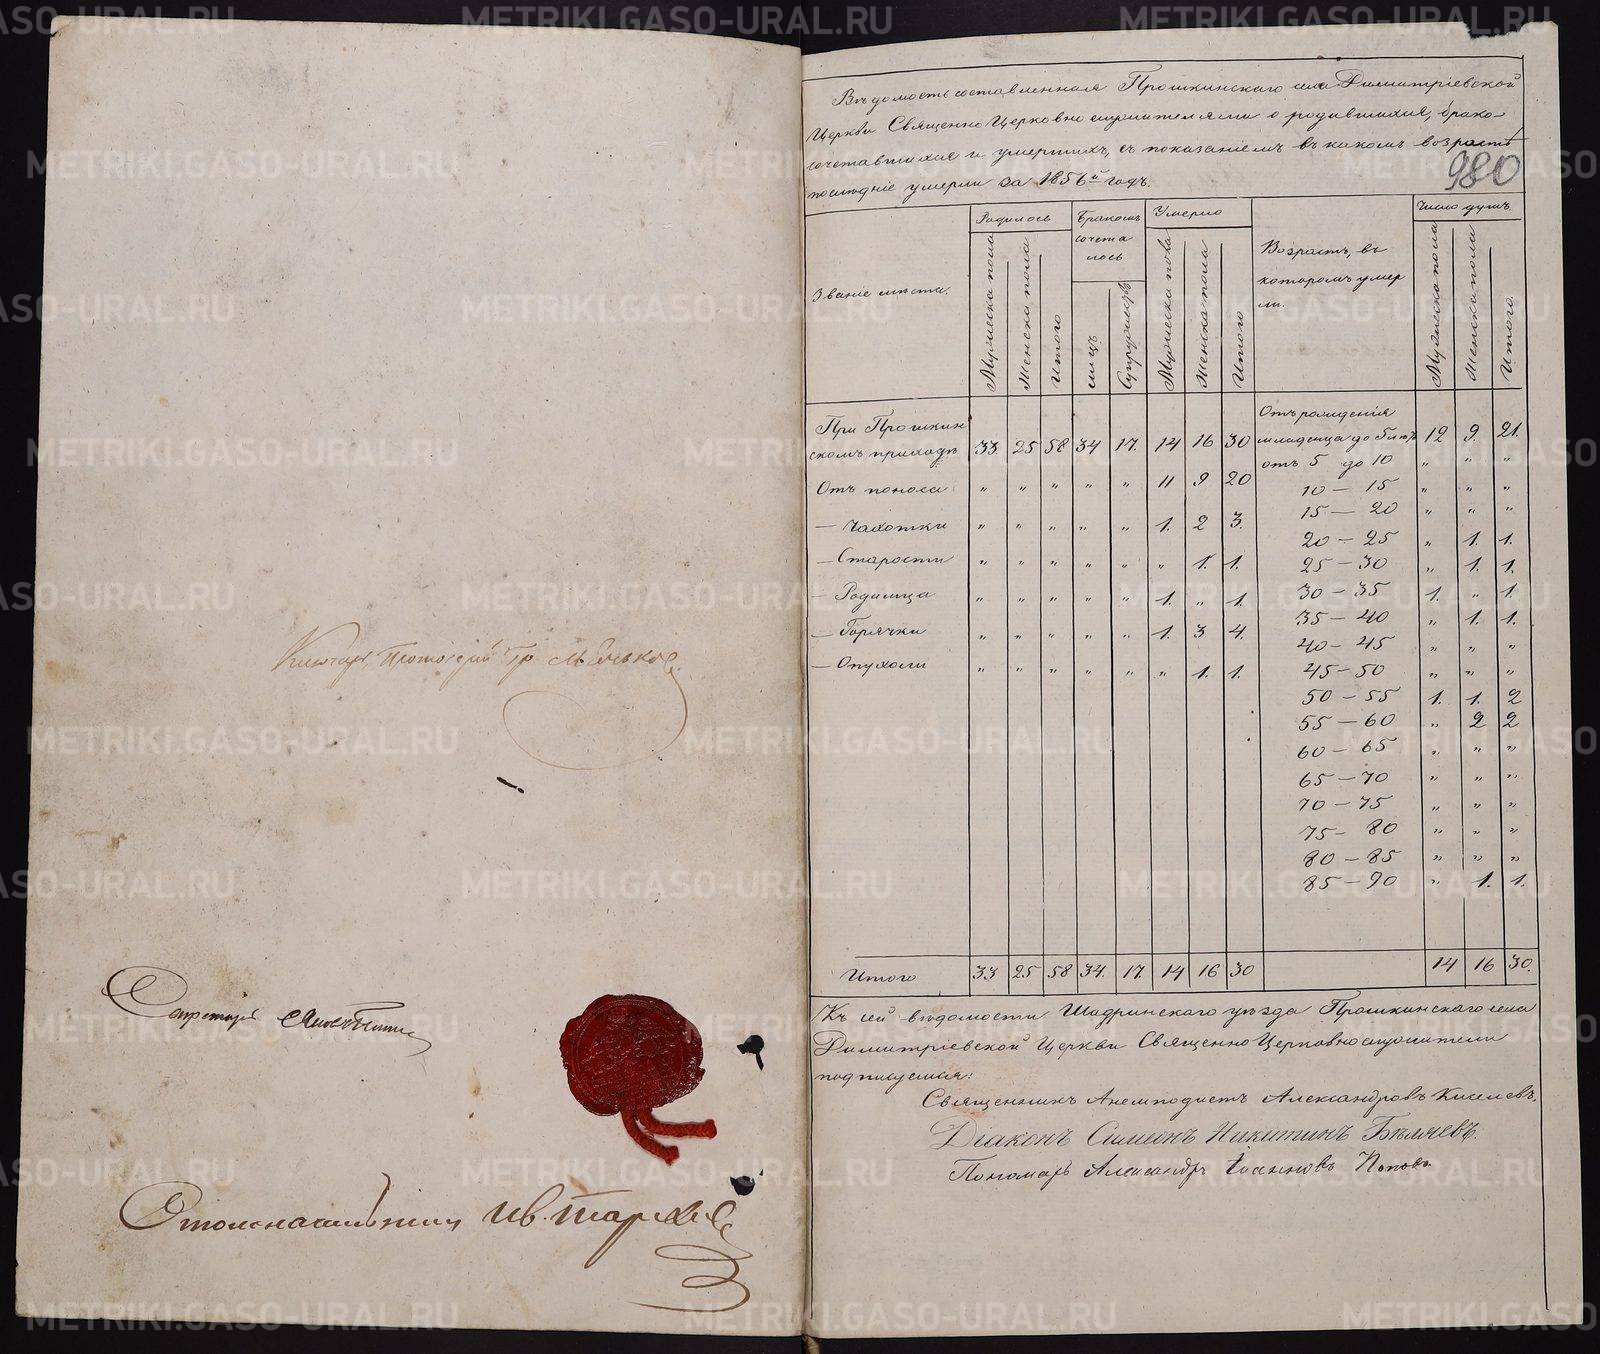 Ключарь Протоіерей Гр.
Секретарь
Столоначальникъ Ив.
Вѣдомость составленная Прошкинскаго села Димитріевской
Церкви Священно Церковно служителями о родившихся, брако-
сочетавшихся и умершихъ, съ показаніемъ въ какомъ возрастѣ
послѣдніе умерли за 1856й годъ.
980
Званіе мѣста.
Родилось
Мужеска пола
Женска пола
Итого
Бракомъ
сочета
лось
лицъ
Супружествъ
Умерло
Мужеска пола
Женска пола
Итого
Возрастъ, въ
которомъ умер
ли.
Число душъ
Мужеска пола
Женска пола
Итого
При Прошкин
скомъ приходѣ 33. 25 58 34 17. 14 16 30
Отъ поноса " " " " " 11 9 20
— Чахотки " " " " " 1. 2 3.
— Старости " " " " " " 1. 1.
— Родимца " " " " " 1. " 1.
— Горячки " " " " " 1. 3 4.
— Опухоли " " " " " " 1. 1.
Отъ рожденія
младенца до 5 лѣтъ 12 9. 21.
отъ 5 до 10 " " "
10 — 15 " " "
15 — 20 " " "
20 — 25 " 1. 1.
25 — 30 " 1. 1.
30 — 35 1. " 1.
35 — 40 " 1. 1.
40 — 45 " " "
45 — 50 " " "
50 — 55 1. 1. 2
55 — 60 " 2 2
60 — 65 " " "
65 — 70 " " "
70 — 75 " " "
75 — 80 " " "
80 — 85 " " "
85 — 90 " 1. 1.
Итого 33 25 58 34. 17. 14 16 30 14 16 30.
Къ сей вѣдомости Шадринскаго уѣзда Прошкинскаго села
Димитріевской Церкви Священно Церковнослужители
подписуемся:
Священникъ Анемподистъ Александровъ Киселевъ.
Діаконъ Симеонъ Никитинъ Бѣляевъ.
Пономарь Александръ Іоанновъ Поповъ
METRIKI.GASO-URAL.RU